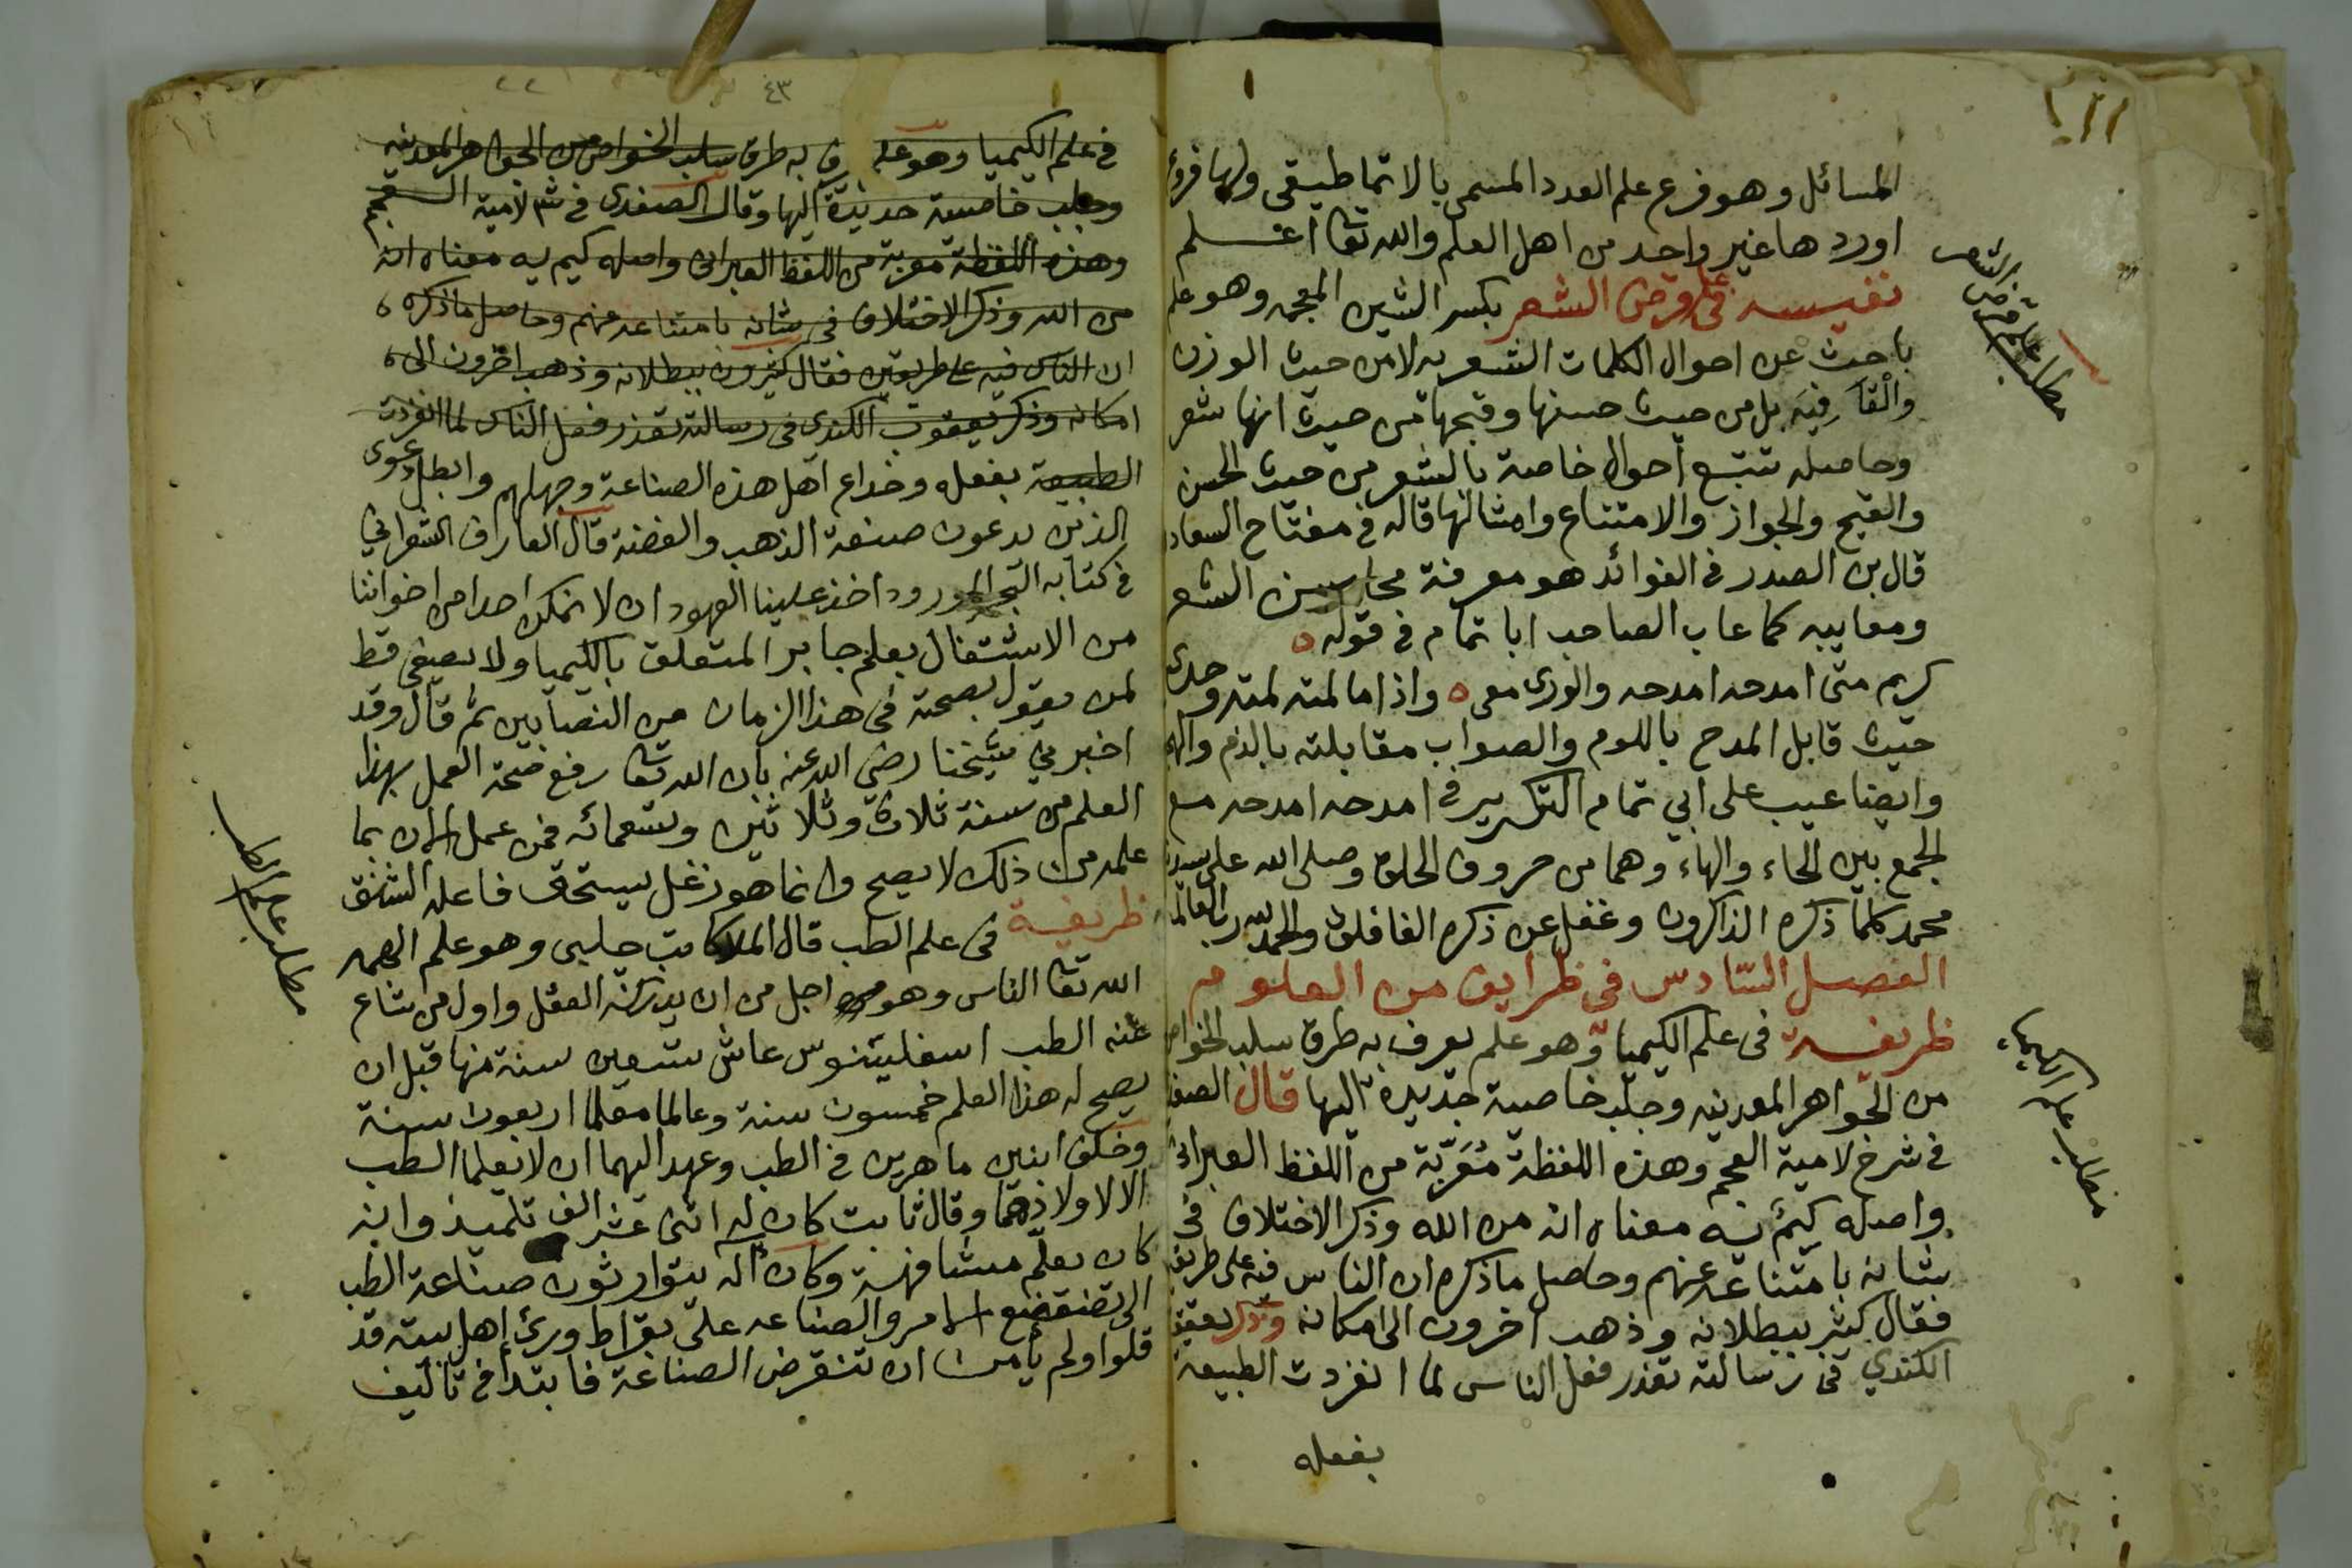 المسائل وهو فرع علم العدد المسمى بالارتماطيقى ولها فروع
اوردها غير واحد من اهل العلم والله تعا اعلم
نفيسة فى علم قرض الشعر بكسر الشين المعجمه وهو علم
باحث عن احوال الكلمات الشعريه لا من حيث الوزن
والقافية بل من حيث حسنها وقبحها من حيث انها شعر
وحاصله تتبع احوال خاصة بالشعر من حيث الحسن
والقبح والجواز والامتناع وامثالها قاله فى مفتاح السعاد
قال بن الصدر فى الفوائد هو معرفة محاسن الشعر
ومعايبه كما عاب الصاحب ابا تمام فى قوله
كريم متى امدحه امدحه والورى معى واذا ما لمته لمته وحدى
حيث قابل المدح باللوم والصواب مقابلته بالذم والهجا
وايضا عيب على ابي تمام التكرير فى امدحه امدحه مع
الجمع بين الحاء والهاء وهما من حروف الحلق وصلى الله على سيدنا
محمد كلما ذكره الذاكرون وغفل عن ذكره الغافلون والحمد لله رب العالمين
الفصل السادس فى ظرايف من العلوم
ظريفة فى علم الكيميا وهو علم يعرف به طرق سلب الخواص
من الجواهر المعدنيه وجلب خاصية جديدة اليها قال الصفدى
فى شرح لامية العجم وهذه اللفظة معربة من اللفظ العبرانى
واصله كيم يه معناه انه من الله وذكر الاختلاف فى
شانه بامتناعه عنهم وحاصل ما ذكره ان الناس فيه على طريقين
فقال كثير ببطلانه وذهب اخرون الى امكانه وذكر يعقوب
الكندي فى رسالته تعذر فعل الناس لما انفردت الطبيعة
بفعله
مطلب علم قرض الشعر
مطلب علم الكيميا
٤٣
فى علم الكيميا وهو علم يعرف به طرق سلب الخواص من الجواهر المعدنيه
وجلب خاصية جديدة اليها وقال الصفدى فى شرح لامية العجم
وهذه اللفظة معربة من اللفظ العبرانى واصله كيم يه معناه انه
من الله وذكر الاختلاف فى شانه بامتناعه عنهم وحاصل ما ذكره
ان الناس فيه على طريقين فقال كثيرون ببطلانه وذهب اخرون الى
امكانه وذكر يعقوب الكندى فى رسالته تعذر فعل الناس لما انفردت
الطبيعة بفعله وخداع اهل هذه الصناعة وجهلهم وابطل دعوى
الذين يدعون صنعة الذهب والفضة قال العارف الشعراني
فى كتابه البحر المورود اخذ علينا العهود ان لا نمكن احدا من اخواننا
من الاشتغال بعلم جابر المتعلق بالكيميا ولا يصغى قط
لمن يقول بصحته فى هذا الزمان من النصابين ثم قال وقد
اخبرني شيخنا رضي الله عنه بان الله تعا رفع صحة العمل بهذا
العلم من سنة ثلاث وثلاثين وتسعمائه فمن عمل الان بما
علمه من ذلك لا يصح وانما هو زغل يستحق فاعله الشنق
ظريفة فى علم الطب قال الملا كاتب جلبى وهو علم الهمه
الله تعا الناس وهو اجل من ان يدركه العقل واول من شاع
عنه الطب اسقلينوس عاش تسعين سنة منها قبل ان
يصح له هذا العلم خمسون سنة وعالما معلما اربعون سنة
وخلف ابنين ماهرين فى الطب وعهد اليهما ان لا يعلما الطب
الا لاولادهما وقال ثابت كان له اثنى عشر الف تلميذ وابنه
كان يعلم مشافهة وكان اله يتوارثون صناعة الطب
الى تضعضع الامر والصناعه على بقراط ورئ اهل بيته قد
قلوا ولم يأمن ان تنقرض الصناعة فابتدأ فى تاليف
مطلب علم الطب